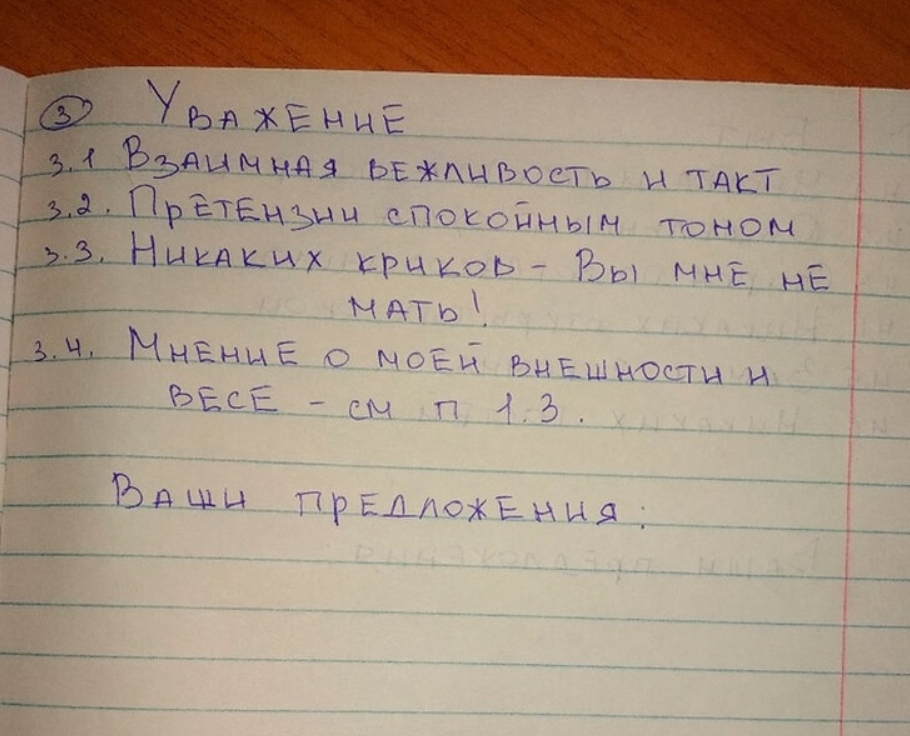 3 Уважение
3.1 Взаимная вежливость и такт
3.2. Претензии спокойным тоном
3.3. Никаких криков - Вы мне не
мать!
3.4. Мнение о моей внешности и
весе - см п 1.3.
Ваши предложения: